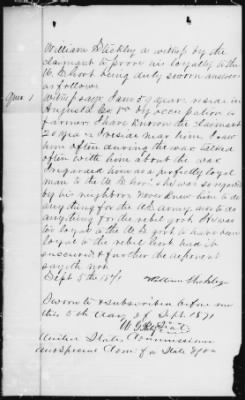 William Shickley a witness by the
claimant to prove his loyalty to the
U.S. Govt being duly sworn answers
as follows
Ques. 1
Witness says I am 59 years reside in
Augusta Co. Va. by occupation a
farmer I have known the claimant
20 years & reside near him. I saw
him often during the war talked
often with him about the war
I regarded him as a perfectly loyal
man to the U.S. Govt. & he was so regarded
by his neighbors. Never knew him to do
anything for the U.S. Army or to do
anything for the rebel govt. He was
too loyal to the U.S. Govt to have been
loyal to the rebel Govt had it
succeeded & further the deponent
sayeth not.
Sept 5th 1871
William Shickley
Sworn to & subscribed before me
this 5th day of Sept. 1871
United States Commissioner
and Special Com. of